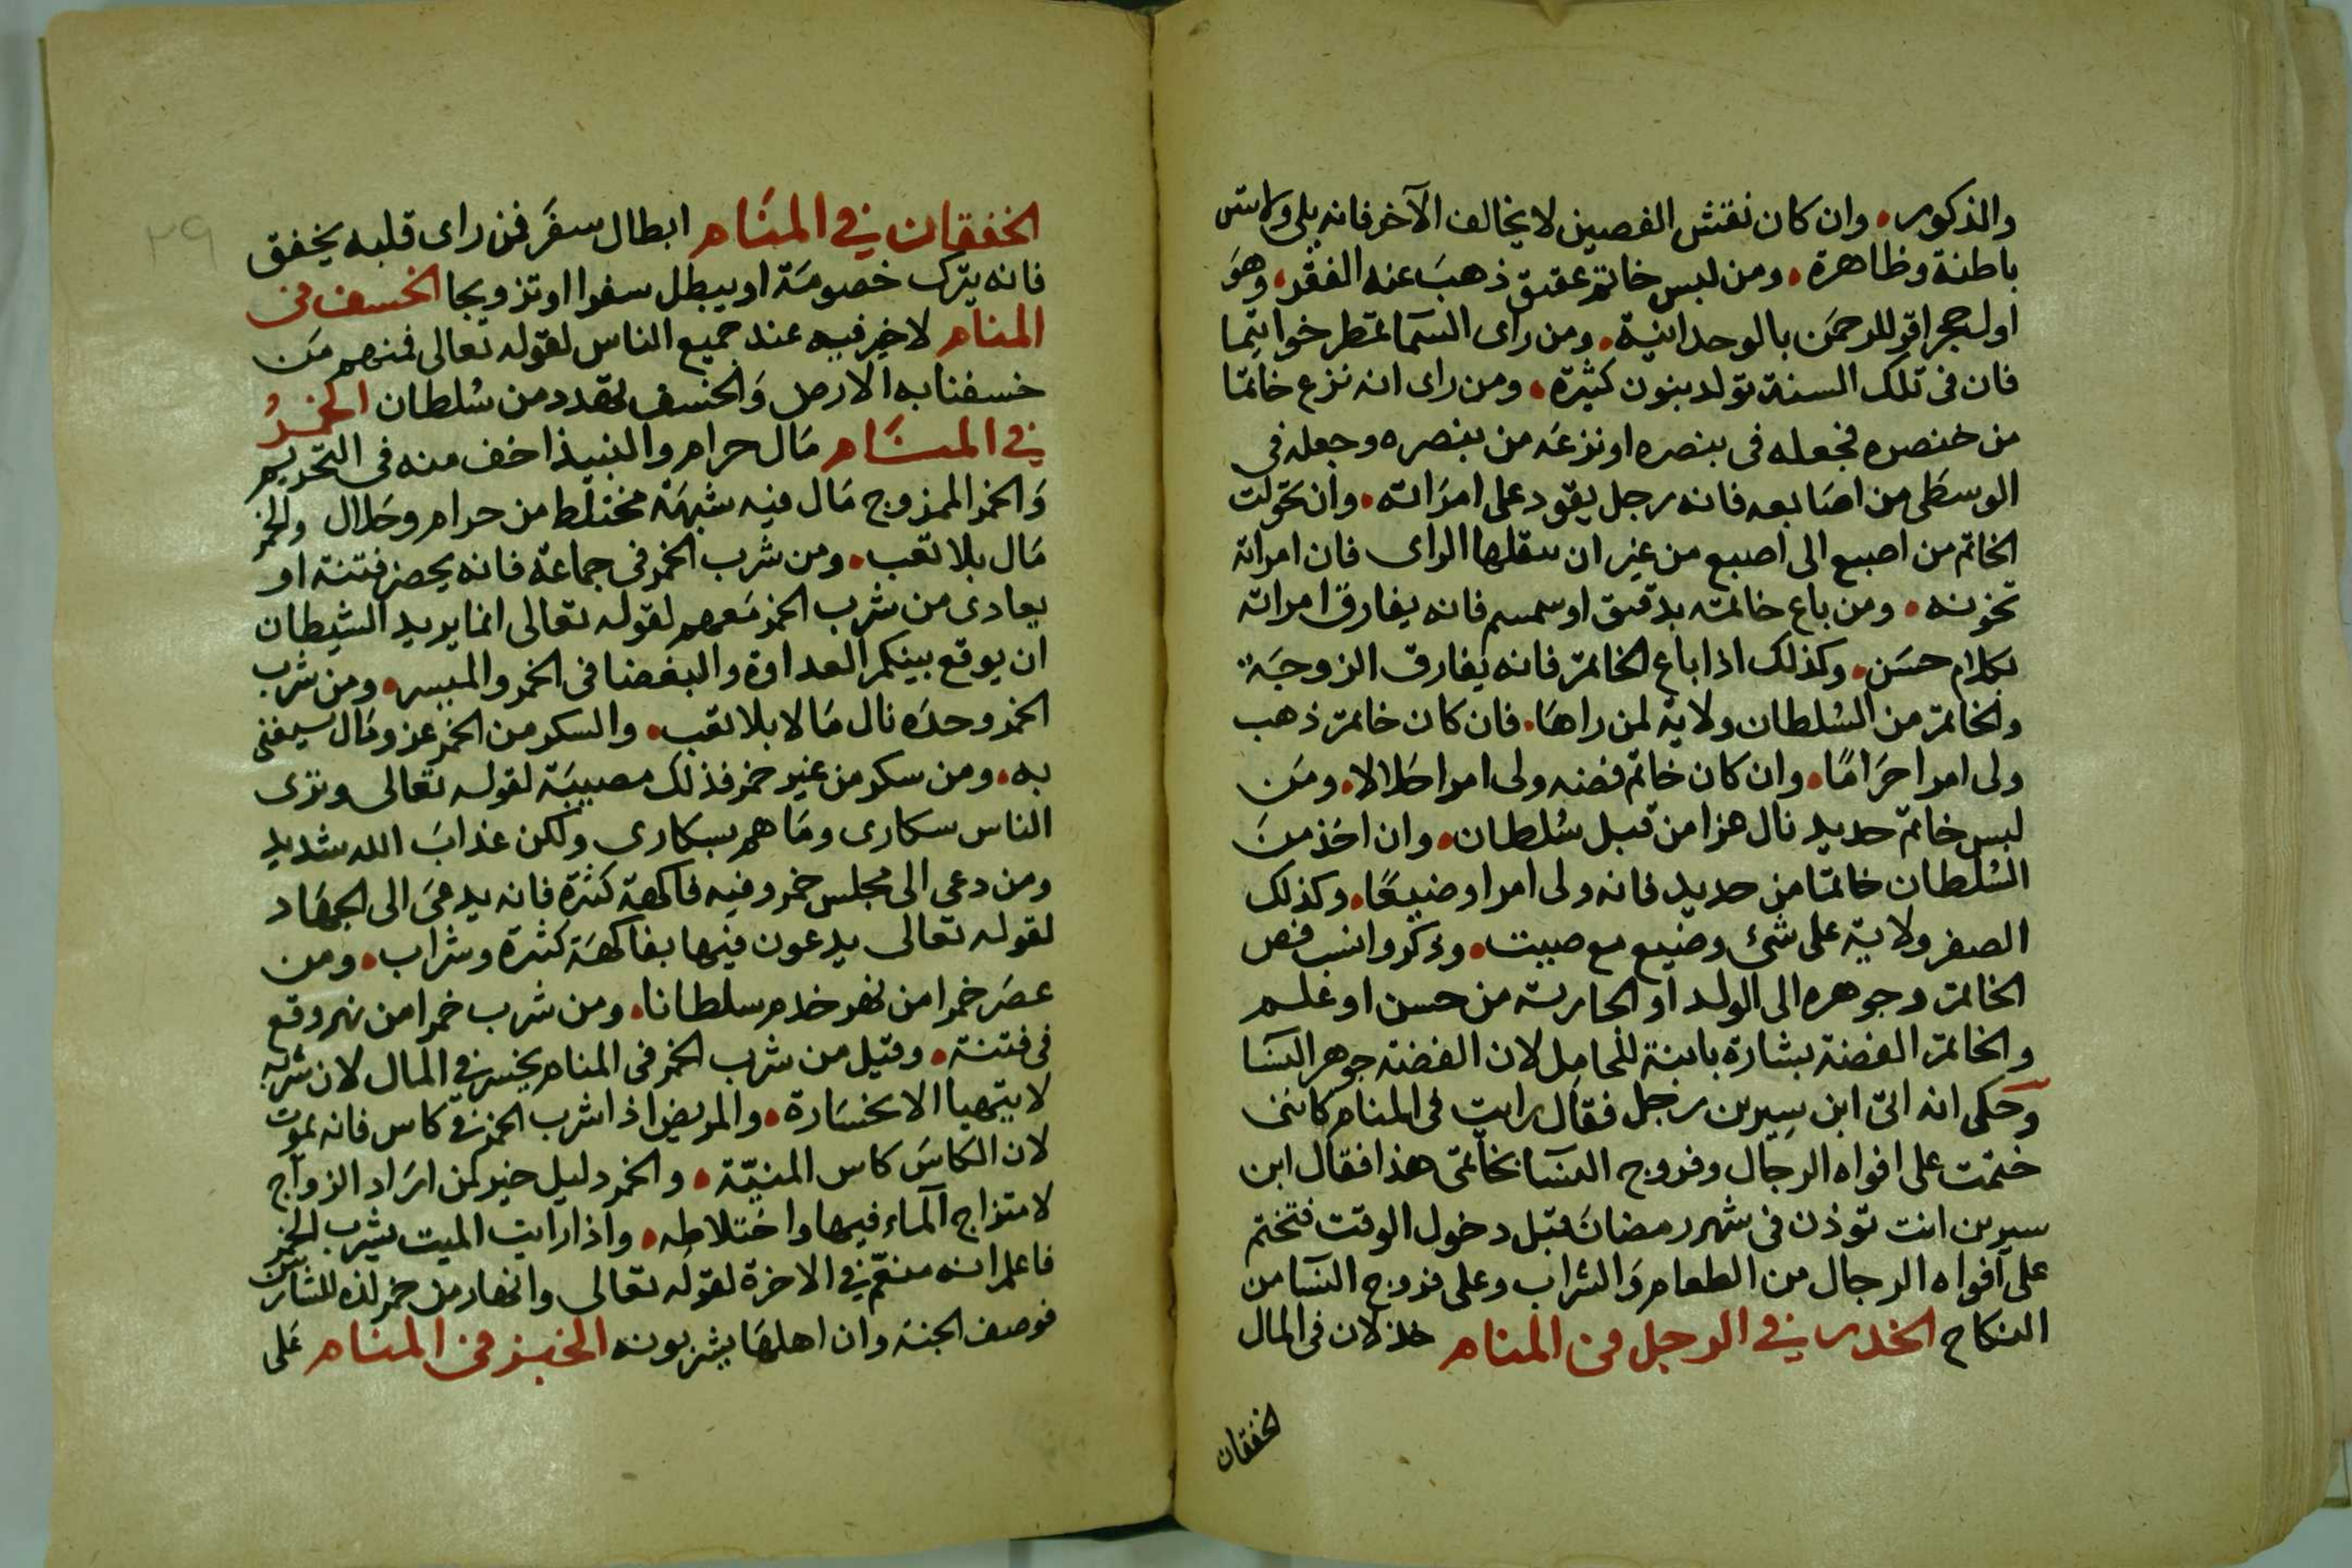 والذكور، وان كان نقش الفصين لا يخالف الآخر فانه يلي ولايتين
باطنة وظاهرة، ومن لبس خاتم عقيق ذهبَ عنه الفقر، وهوَ
اول حجر اقر للرحمَن بالوحدانية، ومن راى السمَا تمطر خواتيما
فان فى تلك السنة تولد بنون كثيرة، ومن راى انه نزع خاتمًا
من خنصره فجعله فى بنصره او نزعَه من بنصره وجعله فى
الوسطَى من اصَابعه فانه رجل يقود على امرَاته، وان تحَولت
الخاتم من اصبع الى اصبع من غير ان ينقلها الراى فان امراته
تخونه، ومن باع خاتمه بدقيق او سمسم فانه يفارق امراته
بكلام حسَن، وكذلك اذا باع الخاتم فانه يفارق الزوجَة
والخاتم من السُلطان ولاية لمن راهَا، فان كان خاتم ذهب
ولى امرا حرَامًا، وان كان خاتم فضه ولى امرا حلالا، ومَن
لبس خاتم حديد نال عزا من قبل سُلطان، وان اخذ منَ
السُلطان خاتمًا من حديد فانه ولى امرا وضيعًا، وكذلك
الصفر ولاية على شئ وضيع مع صيت، وذكروا انسب فص
الخاتم وجوهره الى الولد او الجارية من حسن او علم
والخاتم الفضة بشارة بابنة للحامِل لان الفضة جوهر النسَا
وحكى انه اتى ابن سِيرين رجل فقال رايت فى المنام كاننى
ختمت على افواه الرجال وفروج النسَا بخاتمى هذا فقال ابن
سيرين انت توذن فى شهر رمضانَ قبل دخول الوقت فتختم
على افواه الرجال من الطعام وَالشراب وعلى فروج النسَا من
النكاح الخدر في الرجل فى المنام خذلان فى المال
لخفقان
الخفقان في المنَام ابطال سفَر فمن راى قلبه يخفق
فانه يترك خصومَة او يبطل سفرا او تزويجا الخسف فى
المنام لا خير فيه عند جميع الناس لقوله تعالى فمنهم مَن
خسفنا به الارض وَالخسف تهدد من سُلطان الخمرُ
في المنَام مَال حرام والنبيذ اخف منه فى التحريم
وَالخمر الممزوج مَال فيه شبهَة مختلط من حرام وحَلال والخمر
مَال بلا تعب، ومن شرب الخمر فى جماعة فانه يحضر فتنة او
يعادى من شرب الخمر مَعهم لقوله تعالى انما يريد الشيطان
ان يوقع بينكم العداوة والبغضا فى الخمر والميسر، ومن شرب
الخمر وحدَه نال مَالا بلا تعب، والسكر من الخمر عز ومَال سيغنى
به، ومن سكر من غير خمر فذلك مصيبَة لقوله تعالى وترى
الناس سكارى ومَا هم بسكارى ولكن عذابَ الله شديد
ومن دعى الى مجلس خمر وفيه فاكهة كثيرة فانه يدعَى الى الجهَاد
لقوله تعالى يدعون فيها بفاكهَة كثيرة وشراب، ومن
عصَر خمرا من نهر خدم سلطانا، ومن شرب خمرا من نهر وقع
فى فتنة، وقيل من شرب الخمر فى المنام يخسر في المال لان شربه
لا يتهيا الا بخسَارة، والمريض اذا شرب الخمر في كاس فانه يموت
لان الكاسَ كاس المنيّة، والخمر دليل خير لمن ارَاد الزواج
لامتزاج الماء فيها واختلاطه، واذا رايت الميت يشرب الخمر
فاعلم انه منعّم في الاخرة لقوله تعالى وانهار من خمر لذه للشاربين
فوصف الجنة وان اهلهَا يشربونه الخبز فى المنام عَلى
٢٩